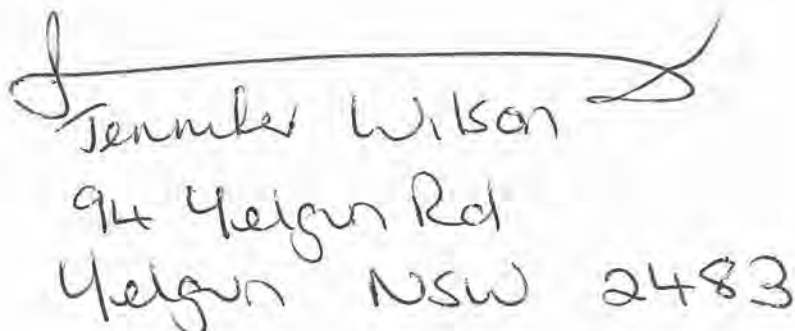 Jennifer Wilson
94 Yelgun Rd
Yelgun NSW 2483